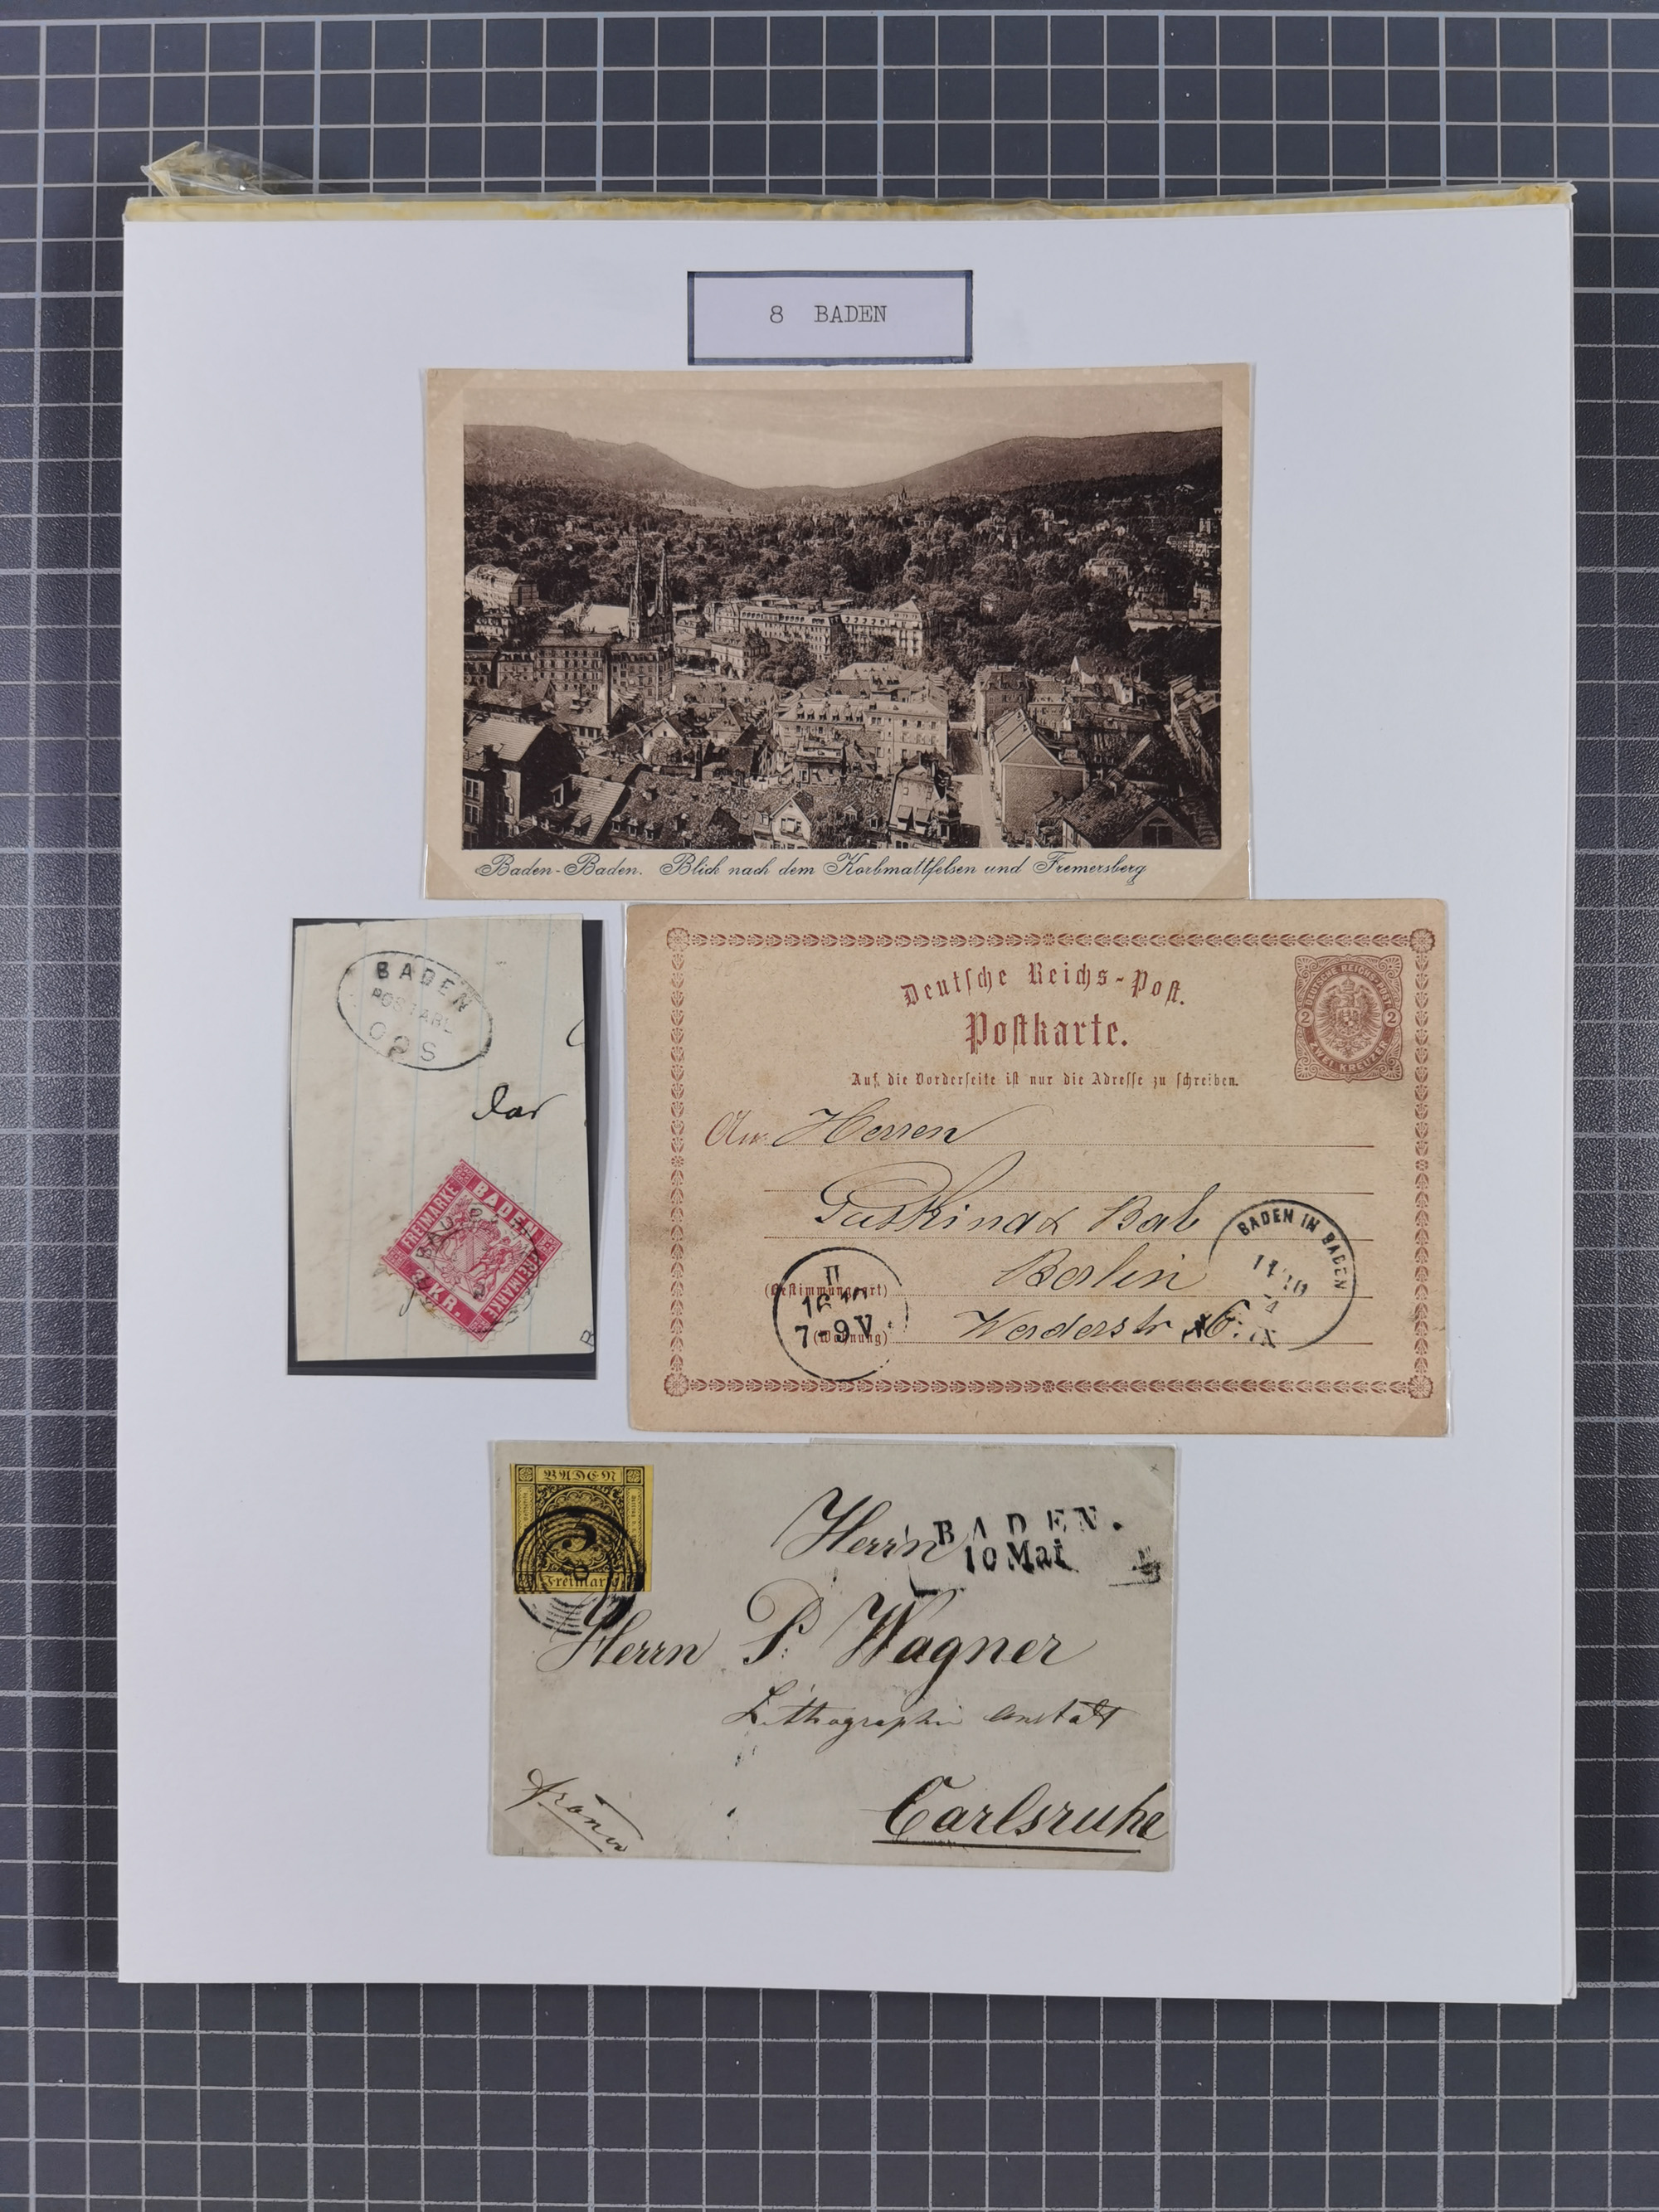 8 BADEN
Baden-Baden. Blick nach dem Korbmattfelsen und Fremersberg
BADEN
POSTABL
OOS
BADEN
FREIMARKE
FREIMARKE
3 KR.
Deutsche Reichs-Post.
Postkarte.
DEUTSCHE REICHS-POST
2 2
ZWEI KREUZER
Auf die Vorderseite ist nur die Adresse zu schreiben.
An Herren
Berlin
BADEN IN BADEN
(Bestimmungsort)
Werderstr 6.
(Wohnung)
II
7-9V
BADEN
3
Freimarke
Herrn
BADEN.
10 Mai
Herrn P. Wagner
Lithographie Anstalt
franco
Carlsruhe